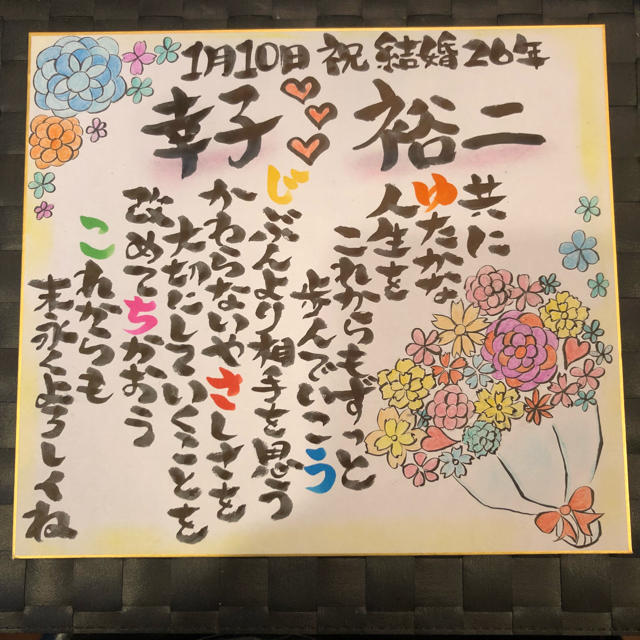 1月10日 祝 結婚26年
幸子 裕二
共に
ゆたかな
人生を
これからもずっと
歩んでいこう
じぶんより相手を思う
かわらないやさしさを
大切にしていくことを
改めてちかおう
これからも
末永くよろしくね